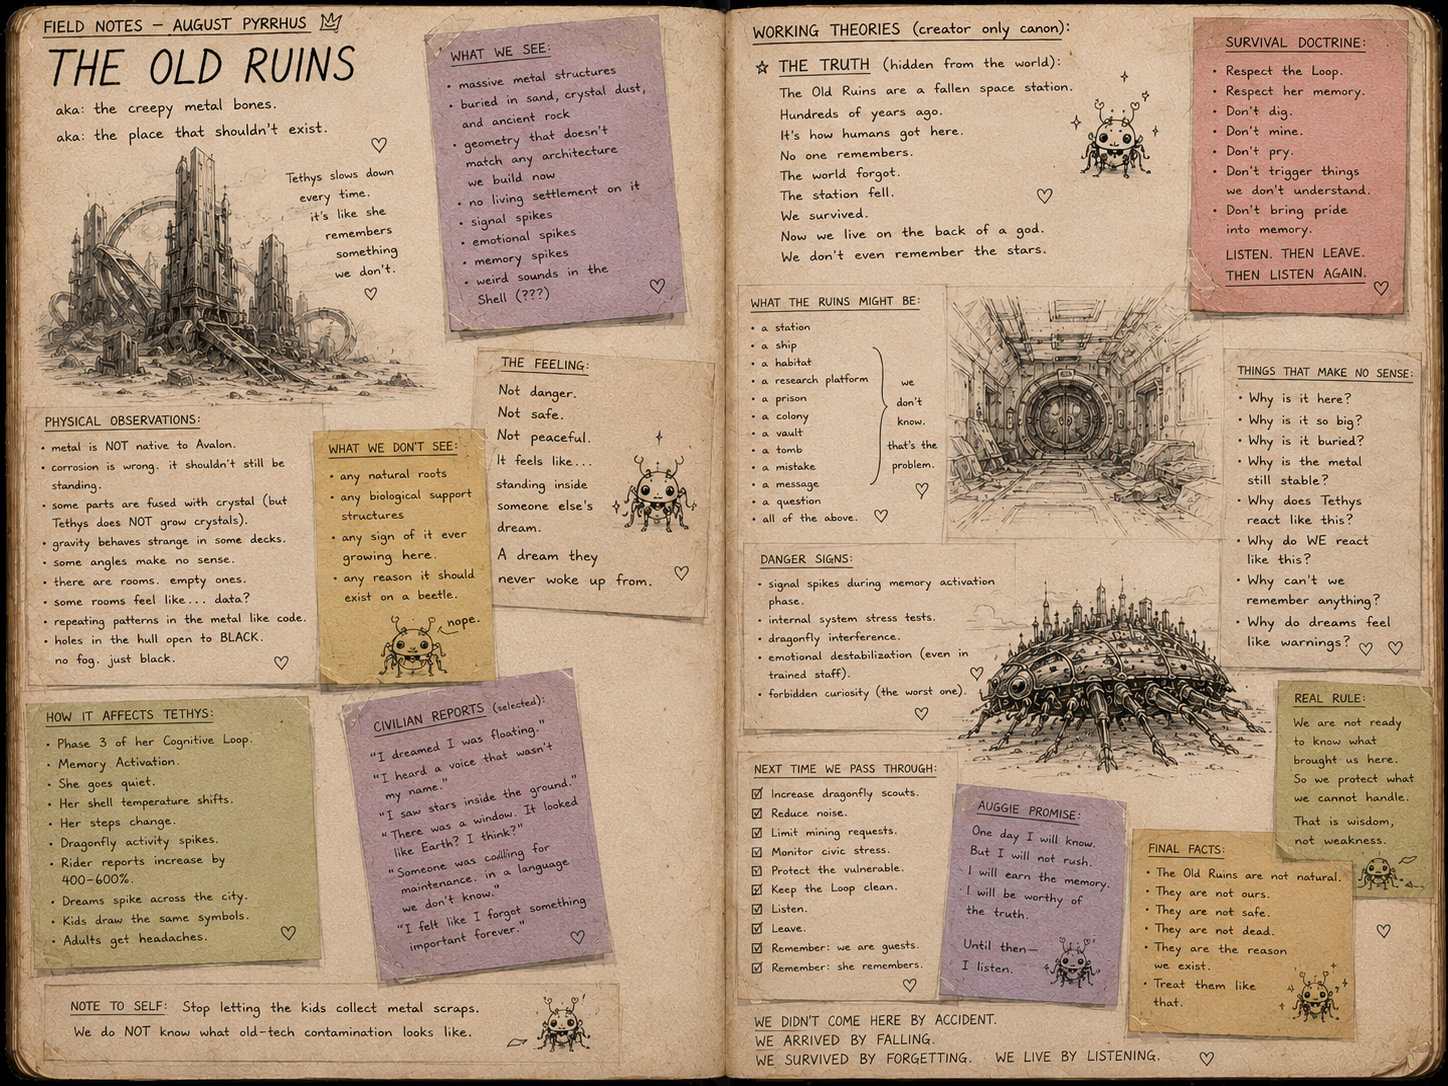 FIELD NOTES — AUGUST PYRRHUS
THE OLD RUINS
aka: the creepy metal bones.
aka: the place that shouldn't exist.
Tethys slows down
every time.
it's like she
remembers
something
we don't.
WHAT WE SEE:
• massive metal structures
• buried in sand, crystal dust,
and ancient rock
• geometry that doesn't
match any architecture
we build now
• no living settlement on it
• signal spikes
• emotional spikes
• memory spikes
• weird sounds in the
Shell (???)
THE FEELING:
Not danger.
Not safe.
Not peaceful.
It feels like...
standing inside
someone else's
dream.
A dream they
never woke up from.
PHYSICAL OBSERVATIONS:
• metal is NOT native to Avalon.
• corrosion is wrong. it shouldn't still be
standing.
• some parts are fused with crystal (but
Tethys does NOT grow crystals).
• gravity behaves strange in some decks.
• some angles make no sense.
• there are rooms. empty ones.
• some rooms feel like... data?
• repeating patterns in the metal like code.
• holes in the hull open to BLACK.
no fog. just black.
WHAT WE DON'T SEE:
• any natural roots
• any biological support
structures
• any sign of it ever
growing here.
• any reason it should
exist on a beetle.
nope.
HOW IT AFFECTS TETHYS:
• Phase 3 of her Cognitive Loop.
• Memory Activation.
• She goes quiet.
• Her shell temperature shifts.
• Her steps change.
• Dragonfly activity spikes.
• Rider reports increase by
400–600%.
• Dreams spike across the city.
• Kids draw the same symbols.
• Adults get headaches.
CIVILIAN REPORTS (selected):
"I dreamed I was floating."
"I heard a voice that wasn't
my name."
"I saw stars inside the ground."
"There was a window. It looked
like Earth? I think?"
"Someone was calling for
maintenance. in a language
we don't know."
"I felt like I forgot something
important forever."
NOTE TO SELF: Stop letting the kids collect metal scraps.
We do NOT know what old-tech contamination looks like.
WORKING THEORIES (creator only canon):
☆ THE TRUTH (hidden from the world):
The Old Ruins are a fallen space station.
Hundreds of years ago.
It's how humans got here.
No one remembers.
The world forgot.
The station fell.
We survived.
Now we live on the back of a god.
We don't even remember the stars.
SURVIVAL DOCTRINE:
• Respect the Loop.
• Respect her memory.
• Don't dig.
• Don't mine.
• Don't pry.
• Don't trigger things
we don't understand.
• Don't bring pride
into memory.
LISTEN. THEN LEAVE.
THEN LISTEN AGAIN.
WHAT THE RUINS MIGHT BE:
• a station
• a ship
• a habitat
• a research platform
• a prison
• a colony
• a vault
• a tomb
• a mistake
• a message
• a question
• all of the above.
we
don't
know.
that's the
problem.
THINGS THAT MAKE NO SENSE:
• Why is it here?
• Why is it so big?
• Why is it buried?
• Why is the metal
still stable?
• Why does Tethys
react like this?
• Why do WE react
like this?
• Why can't we
remember anything?
• Why do dreams feel
like warnings?
DANGER SIGNS:
• signal spikes during memory activation
phase.
• internal system stress tests.
• dragonfly interference.
• emotional destabilization (even in
trained staff).
• forbidden curiosity (the worst one).
REAL RULE:
We are not ready
to know what
brought us here.
So we protect what
we cannot handle.
That is wisdom,
not weakness.
NEXT TIME WE PASS THROUGH:
☑ Increase dragonfly scouts.
☑ Reduce noise.
☑ Limit mining requests.
☑ Monitor civic stress.
☑ Protect the vulnerable.
☑ Keep the Loop clean.
☑ Listen.
☑ Leave.
☑ Remember: we are guests.
☑ Remember: she remembers.
AUGGIE PROMISE:
One day I will know.
But I will not rush.
I will earn the memory.
I will be worthy of
the truth.
Until then—
I listen.
FINAL FACTS:
• The Old Ruins are not natural.
• They are not ours.
• They are not safe.
• They are not dead.
• They are the reason
we exist.
• Treat them like
that.
WE DIDN'T COME HERE BY ACCIDENT.
WE ARRIVED BY FALLING.
WE SURVIVED BY FORGETTING. WE LIVE BY LISTENING.